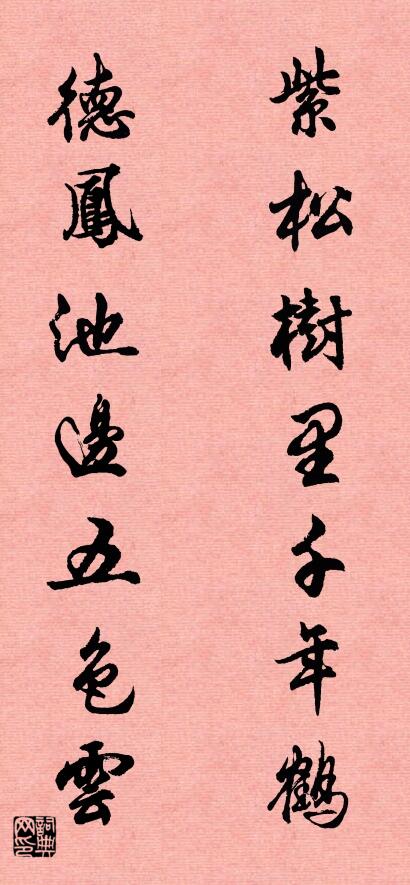 紫松樹里千年鶴
德鳳池邊五色雲
詞典网印